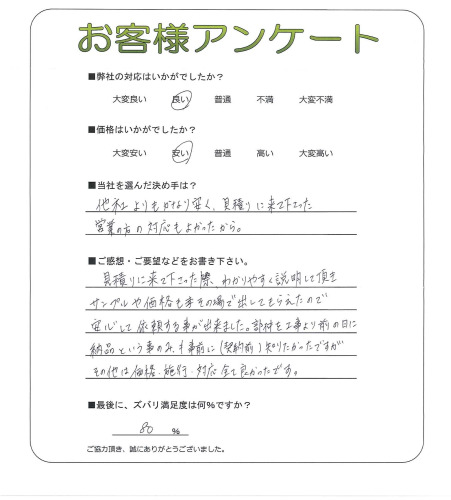 お客様アンケート
■弊社の対応はいかがでしたか？
大変良い 良い 普通 不満 大変不満
■価格はいかがでしたか？
大変安い 安い 普通 高い 大変高い
■当社を選んだ決め手は？
他社よりもかなり安く、見積りに来て下さった
営業の方の対応もよかったから。
■ご感想・ご要望などをお書き下さい。
見積りに来て下さった際、わかりやすく説明して頂き
サンプルや価格もその場で出してもらえたので
安心して依頼する事が出来ました。部材を工事より前の日に
納品という事のみ事前に(契約前)知りたかったですが
その他は価格・施行・対応全て良かったです。
■最後に、ズバリ満足度は何%ですか？
80 %
ご協力頂き、誠にありがとうございました。